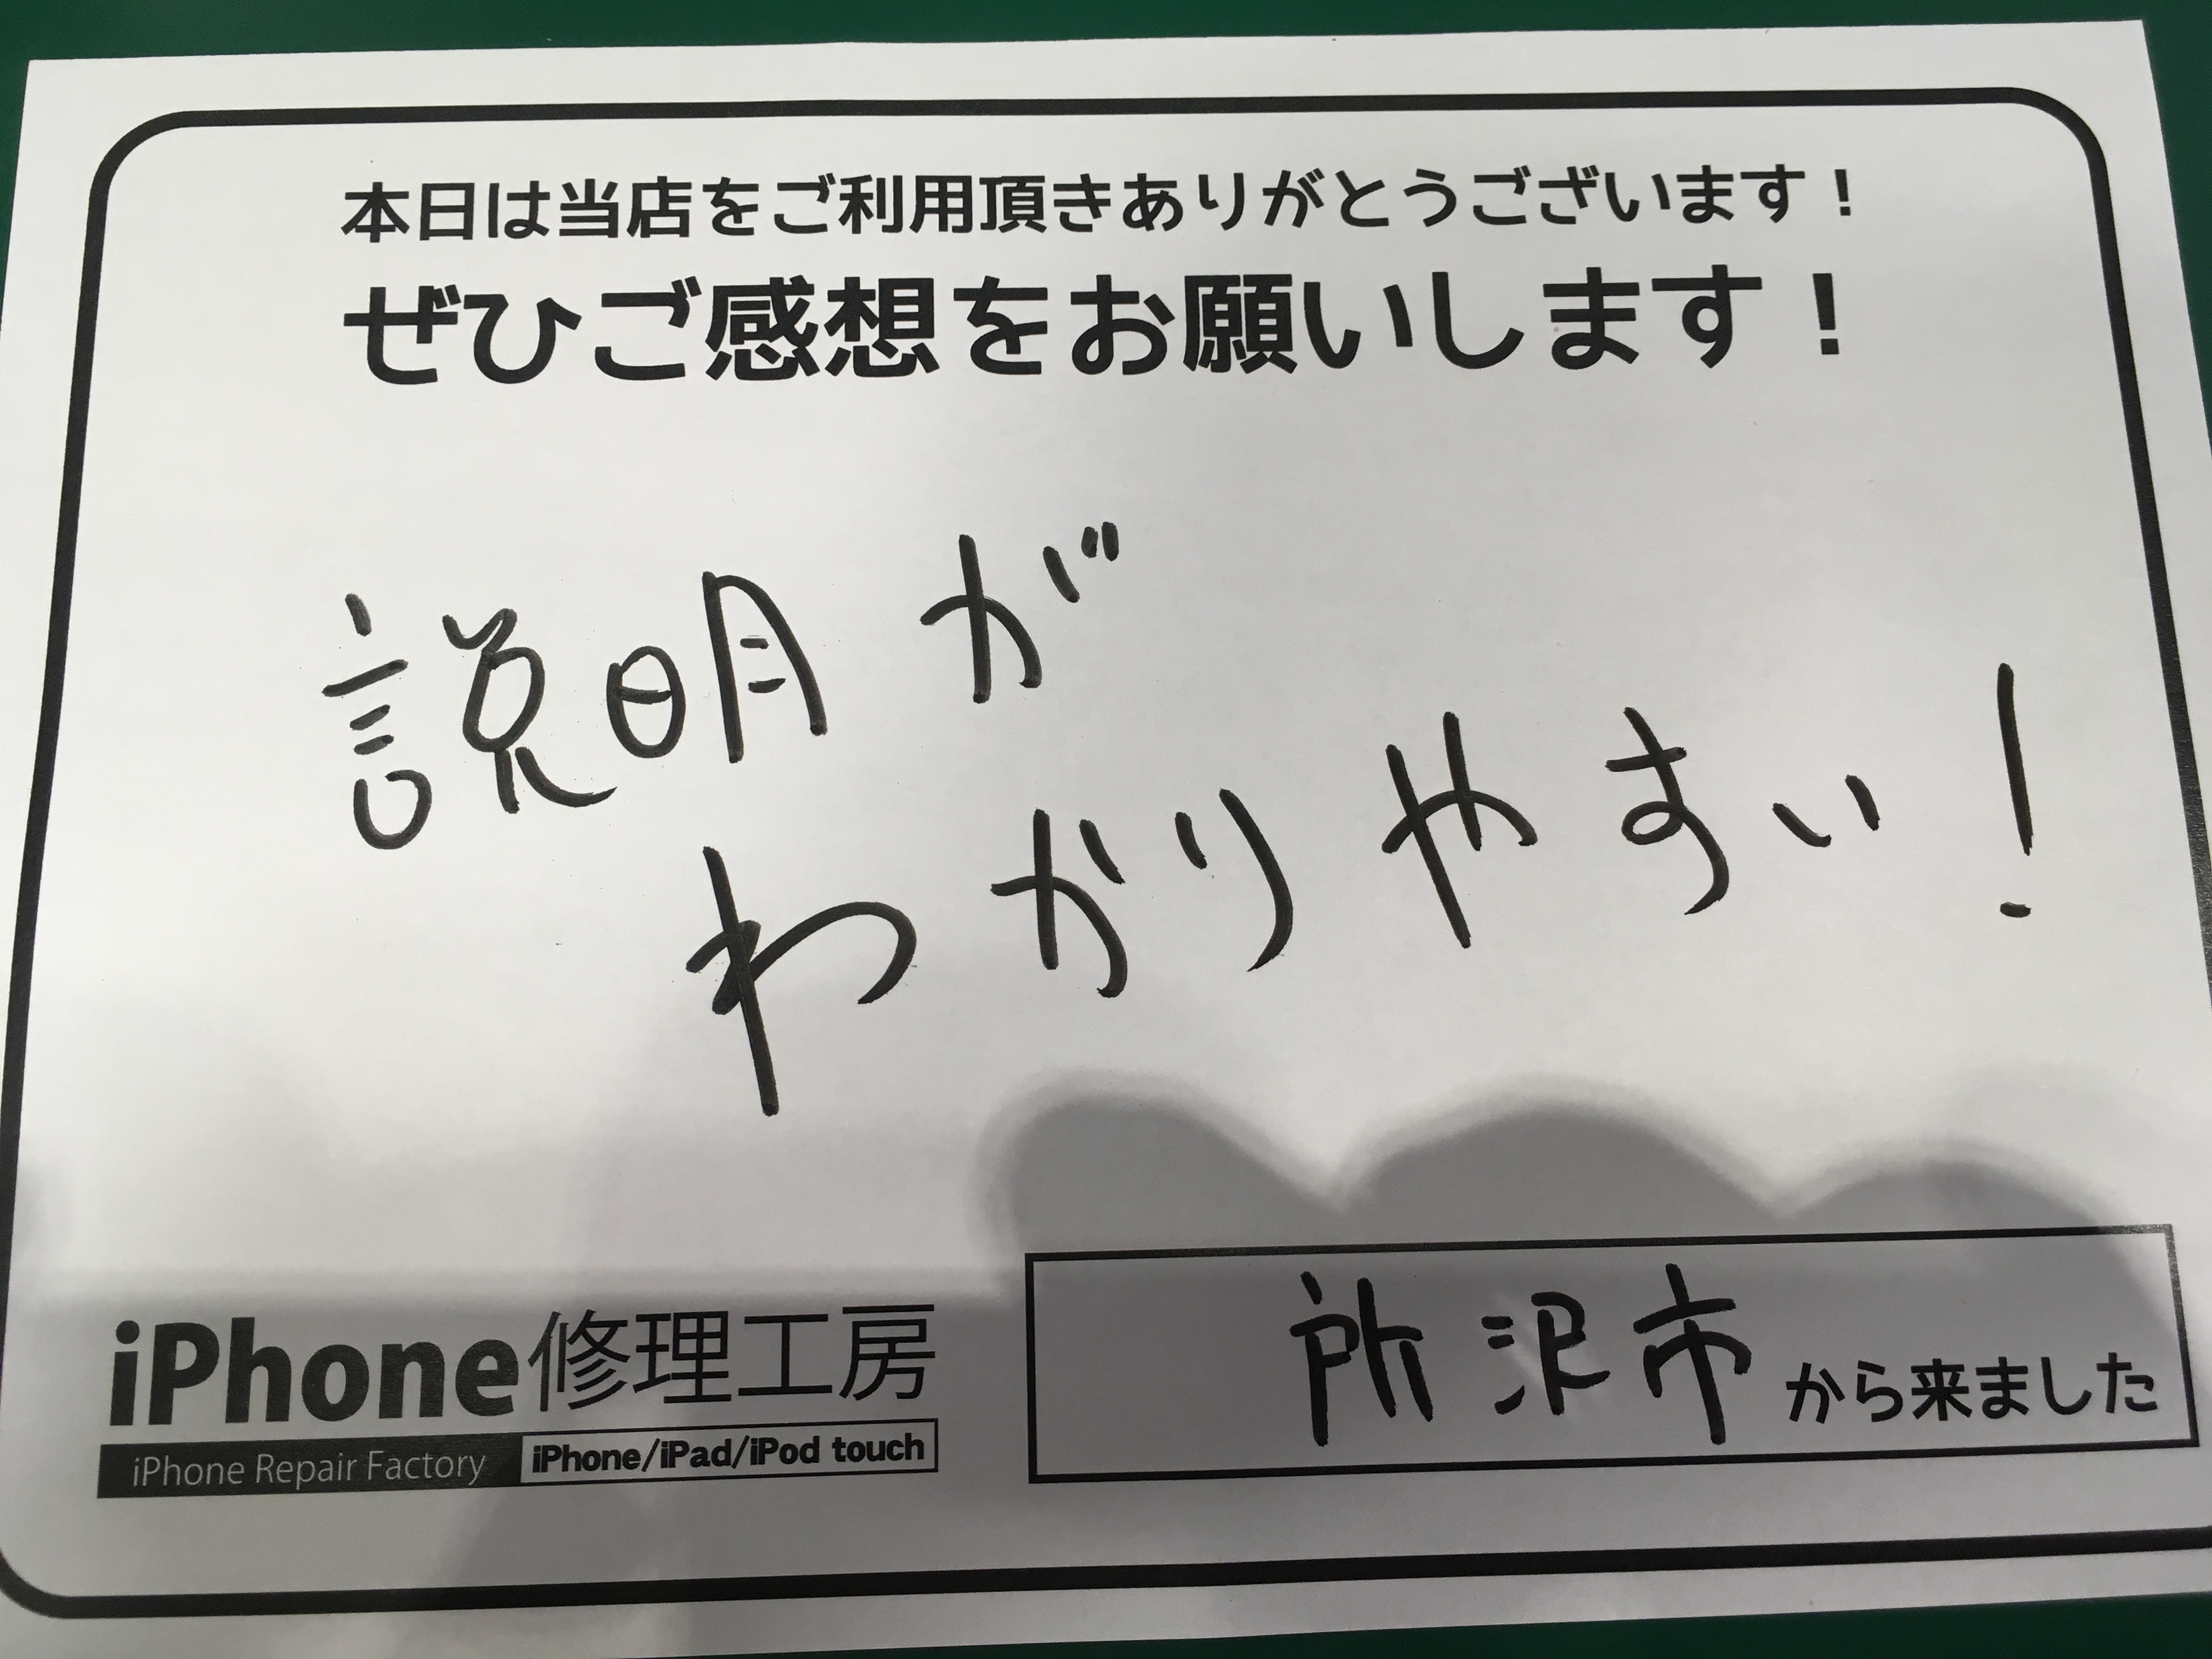 本日は当店をご利用頂きありがとうございます！
ぜひご感想をお願いします！
説明が
わかりやすい！
所沢市から来ました
iPhone修理工房
iPhone Repair Factory iPhone/iPad/iPod touch